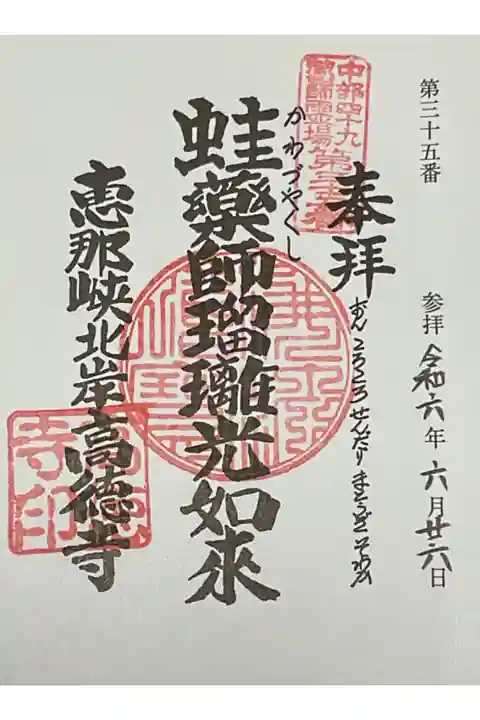 第三十五番
参拝 令和六年 六月廿六日
中部四十九
薬師霊場第三十五番
奉拝
おん ころころ せんだり まとうぎ そわか
かわづやくし
蛙藥師瑠璃光如来
恵那峡北岸高徳寺
寺印